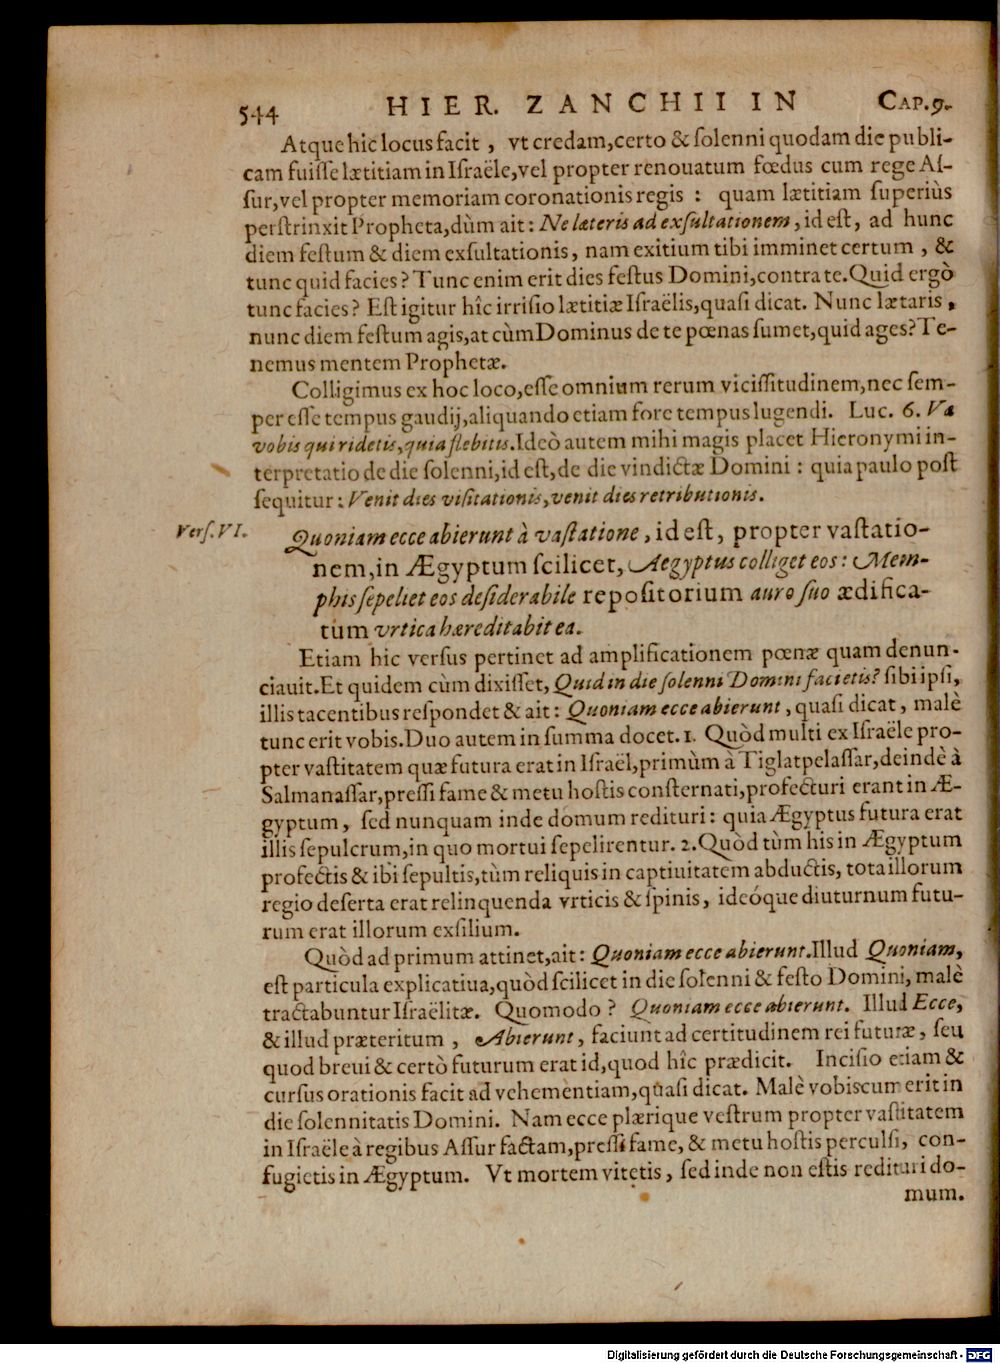 544 HIER. ZANCHII IN CAP.9.
Atque hic locus facit, vt credam, certo & ſolenni quodam die publi-
cam fuiſſe lætitiam in Iſraële, vel propter renouatum fœdus cum rege Aſ-
ſur, vel propter memoriam coronationis regis : quam lætitiam ſuperiùs
perſtrinxit Propheta, dùm ait: Ne læteris ad exſultationem, id eſt, ad hunc
diem feſtum & diem exſultationis, nam exitium tibi imminet certum, &
tunc quid facies? Tunc enim erit dies feſtus Domini, contra te. Quid ergò
tunc facies? Eſt igitur hîc irriſio lætitiæ Iſraëlis, quaſi dicat. Nunc lætaris,
nunc diem feſtum agis, at cùm Dominus de te pœnas ſumet, quid ages? Te-
nemus mentem Prophetæ.
Colligimus ex hoc loco, eſſe omnium rerum viciſſitudinem, nec ſem-
per eſſe tempus gaudij, aliquando etiam fore tempus lugendi. Luc. 6. Va
vobis qui ridetis, quia flebitis. Ideò autem mihi magis placet Hieronymi in-
terpretatio de die ſolenni, id eſt, de die vindictæ Domini : quia paulo poſt
ſequitur : Venit dies viſitationis, venit dies retributionis.
Verſ. VI. Quoniam ecce abierunt à vaſtatione, id eſt, propter vaſtatio-
nem, in Ægyptum ſcilicet, Aegyptus colliget eos: Mem-
phis ſepeliet eos deſiderabile repoſitorium auro ſuo ædifica-
tum vrtica hæreditabit ea.
Etiam hic verſus pertinet ad amplificationem pœnæ quam denun-
ciauit. Et quidem cùm dixiſſet, Quid in die ſolenni Domini facietis? ſibi ipſi,
illis tacentibus reſpondet & ait: Quoniam ecce abierunt, quaſi dicat, malè
tunc erit vobis. Duo autem in ſumma docet. 1. Quòd multi ex Iſraële pro-
pter vaſtitatem quæ futura erat in Iſraël, primùm à Tiglatpelaſſar, deindè à
Salmanaſſar, preſſi fame & metu hoſtis conſternati, profecturi erant in Æ-
gyptum, ſed nunquam inde domum redituri: quia Ægyptus futura erat
illis ſepulcrum, in quo mortui ſepelirentur. 2. Quòd tùm his in Ægyptum
profectis & ibi ſepultis, tùm reliquis in captiuitatem abductis, tota illorum
regio deſerta erat relinquenda vrticis & ſpinis, ideóque diuturnum futu-
rum erat illorum exſilium.
Quòd ad primum attinet, ait: Quoniam ecce abierunt. Illud Quoniam,
eſt particula explicatiua, quòd ſcilicet in die ſolenni & feſto Domini, malè
tractabuntur Iſraëlitæ. Quomodo? Quoniam ecce abierunt. Illud Ecce,
& illud præteritum, Abierunt, faciunt ad certitudinem rei futuræ, ſeu
quod breui & certò futurum erat id, quod hîc prædicit. Inciſio etiam &
curſus orationis facit ad vehementiam, quaſi dicat. Malè vobiscum erit in
die ſolennitatis Domini. Nam ecce plærique veſtrum propter vaſtitatem
in Iſraële à regibus Aſſur factam, preſſi fame, & metu hoſtis perculſi, con-
fugietis in Ægyptum. Vt mortem vitetis, ſed inde non eſtis redituri do-
mum.
Digitalisierung gefördert durch die Deutsche Forschungsgemeinschaft - DFG